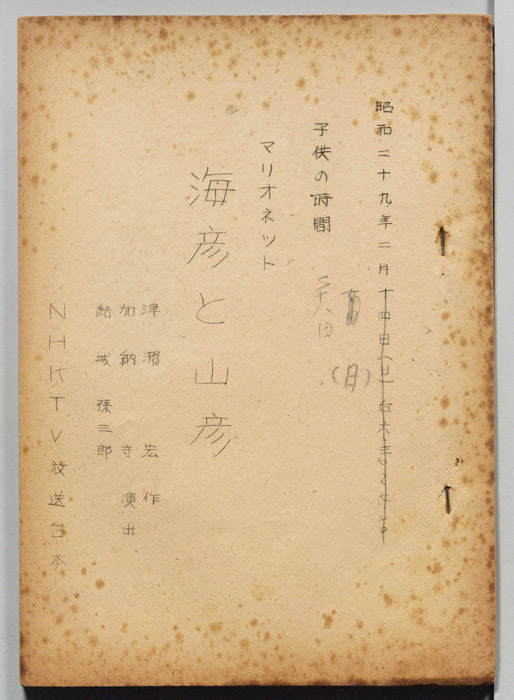 昭和二十九年二月十四日(日)
子供の時間
マリオネット
海彦と山彦
津瀬 宏 作
加納 守 演出
結城孫三郎
NHKTV放送台本
(日)